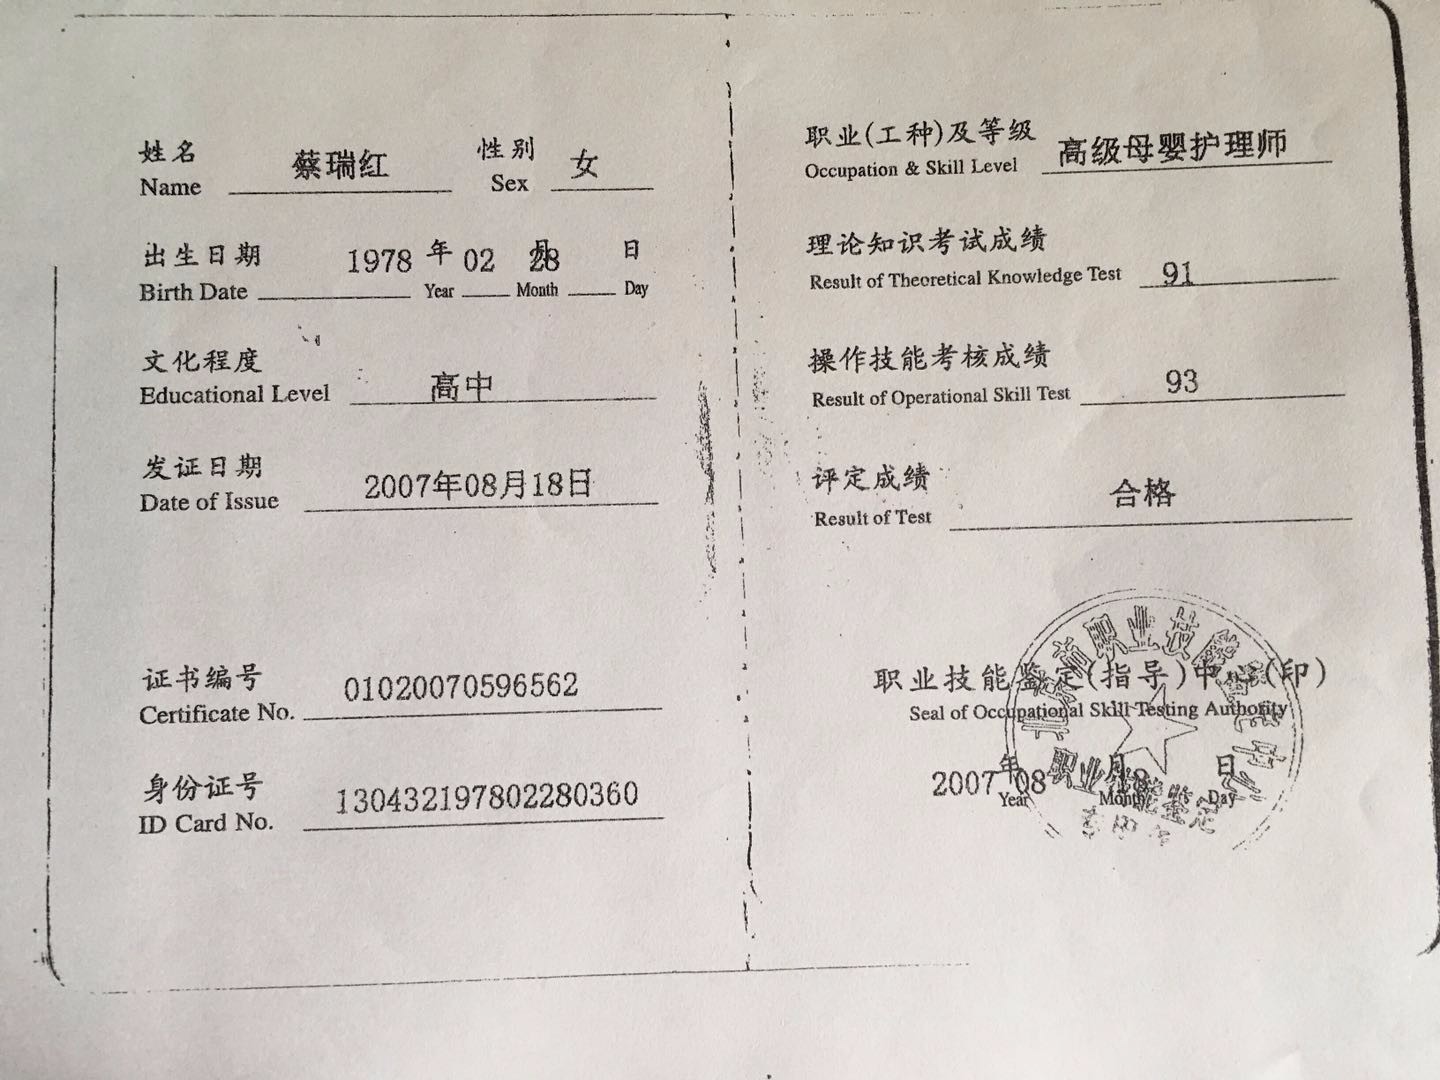 姓名 蔡瑞红 性别 女
Name Sex
出生日期 1978 年 02 月 28 日
Birth Date Year Month Day
文化程度 高中
Educational Level
发证日期 2007年08月18日
Date of Issue
证书编号 01020070596562
Certificate No.
身份证号 130432197802280360
ID Card No.
职业(工种)及等级 高级母婴护理师
Occupation & Skill Level
理论知识考试成绩 91
Result of Theoretical Knowledge Test
操作技能考核成绩 93
Result of Operational Skill Test
评定成绩 合格
Result of Test
职业技能鉴定(指导)中心(印)
Seal of Occupational Skill Testing Authority
2007 年 08 月 18 日
Year Month Day